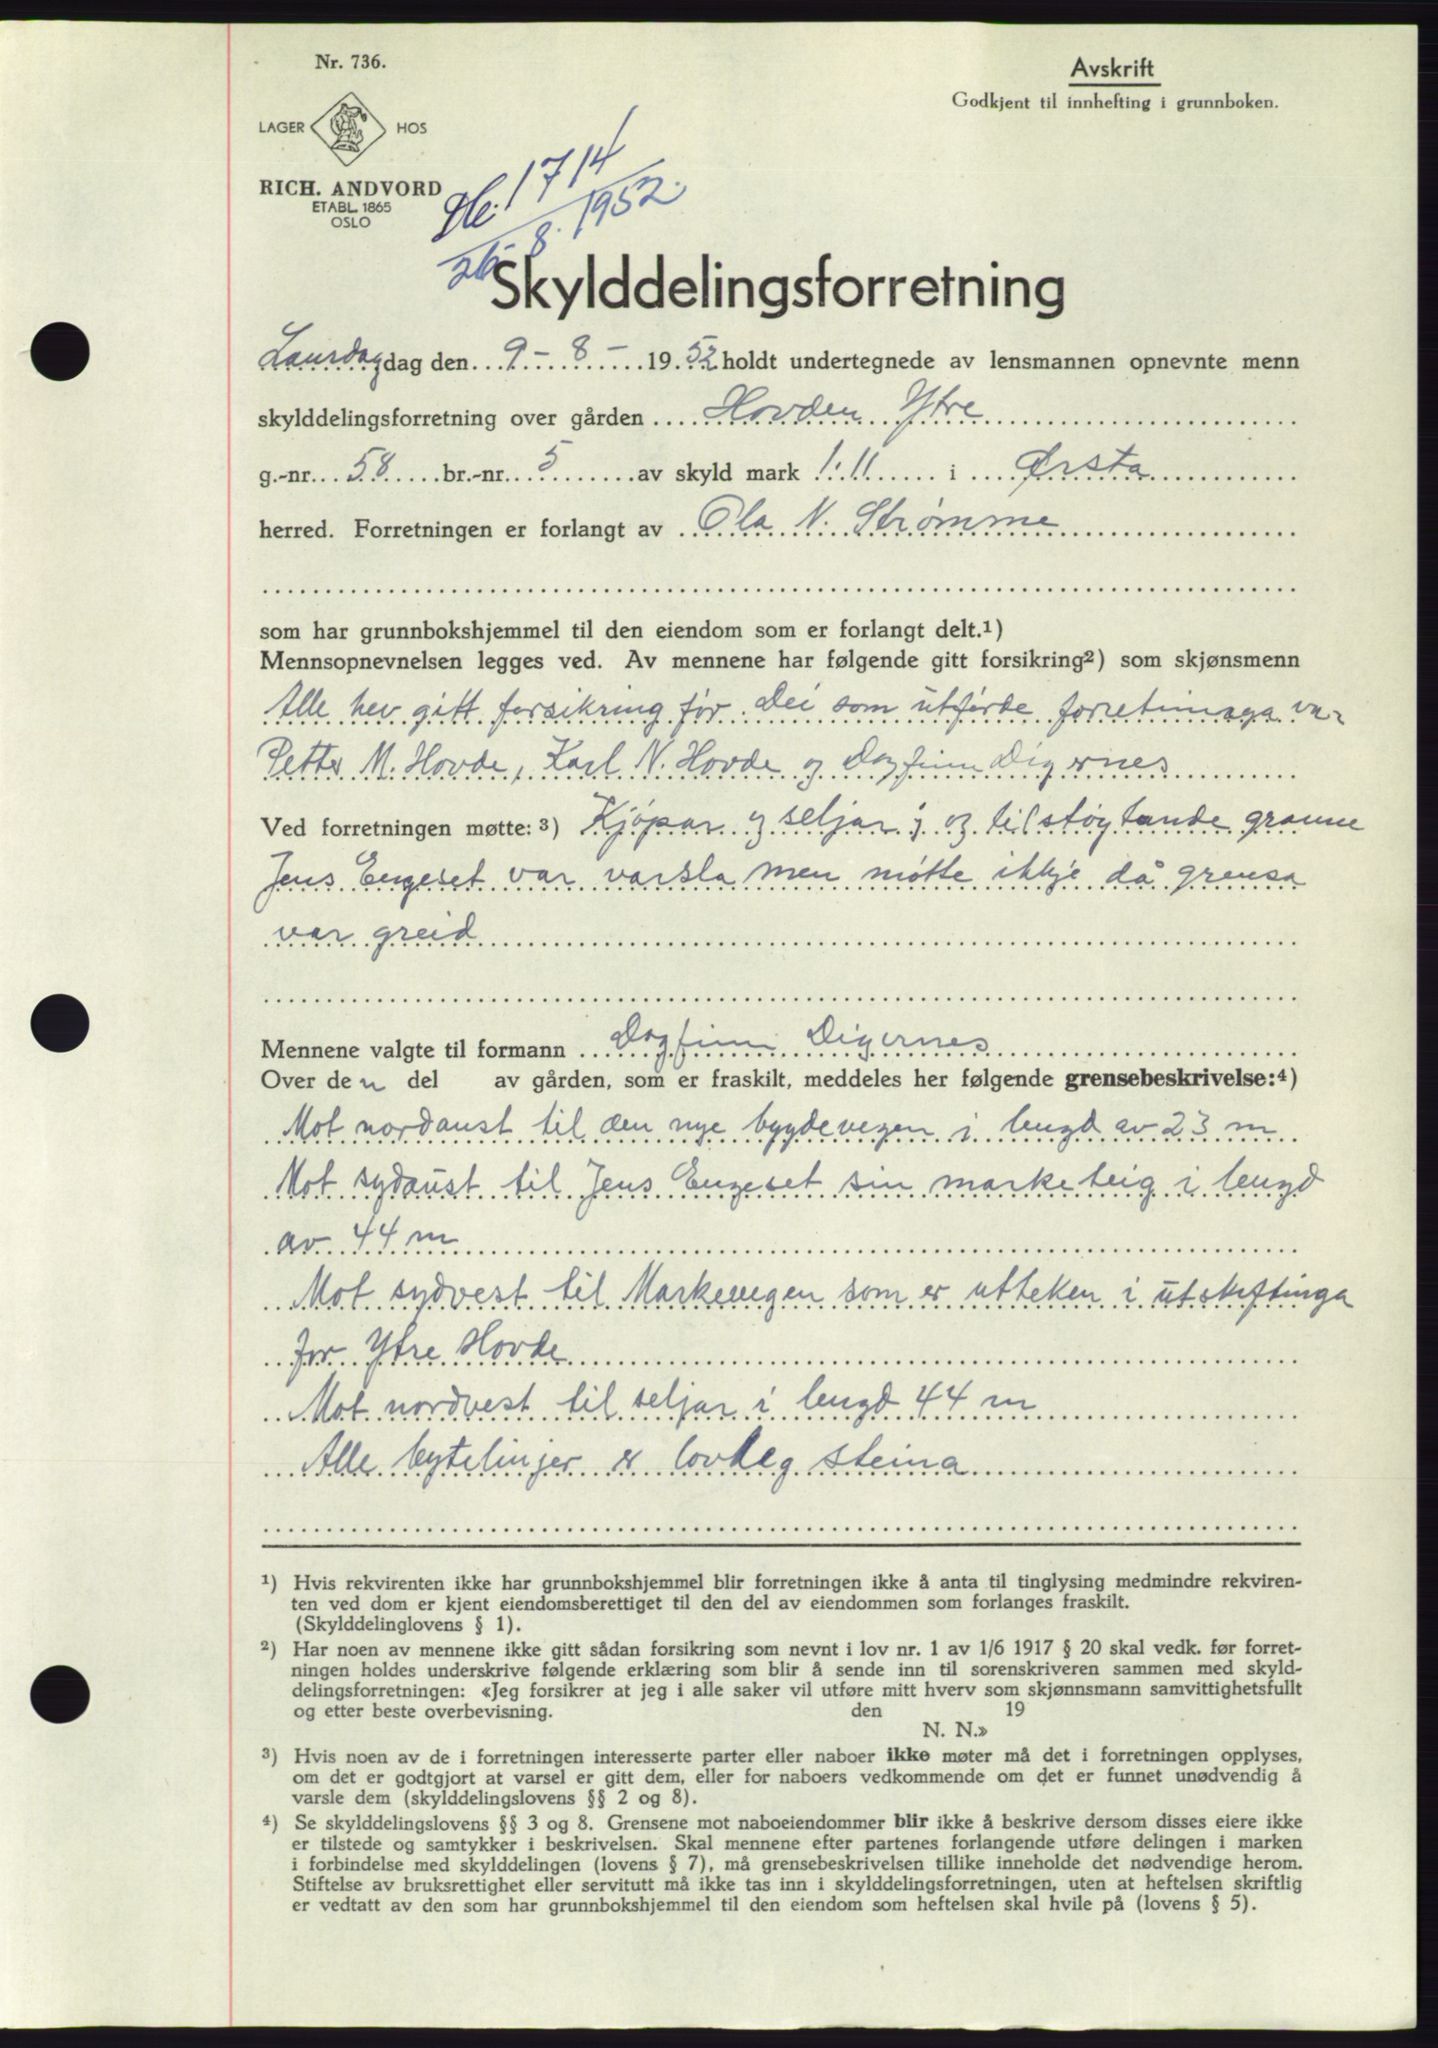 Nr. 736.
Avskrift
Godkjent til innhefting i grunnboken.
LAGER HOS
RICH. ANDVORD
ETABL. 1865
OSLO
1714
26/8. 1952.
Skylddelingsforretning
Laurdag dag den 9 - 8 - 1952 holdt undertegnede av lensmannen opnevnte menn
skylddelingsforretning over gården Hovden Ytre
g.-nr. 58 br.-nr. 5 av skyld mark 1.11 i Ørsta
herred. Forretningen er forlangt av Ola N. Strømme
som har grunnbokshjemmel til den eiendom som er forlangt delt.¹)
Mennsopnevnelsen legges ved. Av mennene har følgende gitt forsikring²) som skjønsmenn
Alle hev gitt forsikring før. Dei som utførde forretninga var
Petter M. Hovde, Karl N. Hovde og Dagfinn Digernes
Ved forretningen møtte: ³) Kjøpar og seljar; og tilstøytande granne
Jens Engeset var varsla men møtte ikkje då grensa
var greid
Mennene valgte til formann Dagfinn Digernes
Over den del av gården, som er fraskilt, meddeles her følgende grensebeskrivelse:⁴)
Mot nordaust til den nye bygdevegen i lengd av 23 m
Mot sydaust til Jens Engeset sin marketeig i lengd
av 44 m
Mot sydvest til Markevegen som er utteken i utskiftinga
for Ytre Hovde
Mot nordvest til seljar i lengd 44 m
Alle bytelinjer er lovleg steina
¹) Hvis rekvirenten ikke har grunnbokshjemmel blir forretningen ikke å anta til tinglysing medmindre rekviren-
ten ved dom er kjent eiendomsberettiget til den del av eiendommen som forlanges fraskilt.
(Skylddelinglovens § 1).
²) Har noen av mennene ikke gitt sådan forsikring som nevnt i lov nr. 1 av 1/6 1917 § 20 skal vedk. før forret-
ningen holdes underskrive følgende erklæring som blir å sende inn til sorenskriveren sammen med skyld-
delingsforretningen: «Jeg forsikrer at jeg i alle saker vil utføre mitt hverv som skjønnsmann samvittighetsfullt
og etter beste overbevisning. den 19
N. N.»
³) Hvis noen av de i forretningen interesserte parter eller naboer ikke møter må det i forretningen opplyses,
om det er godtgjort at varsel er gitt dem, eller for naboers vedkommende om det er funnet unødvendig å
varsle dem (skylddelingslovens §§ 2 og 8).
⁴) Se skylddelingslovens §§ 3 og 8. Grensene mot naboeiendommer blir ikke å beskrive dersom disses eiere ikke
er tilstede og samtykker i beskrivelsen. Skal mennene efter partenes forlangende utføre delingen i marken
i forbindelse med skylddelingen (lovens § 7), må grensebeskrivelsen tillike inneholde det nødvendige herom.
Stiftelse av bruksrettighet eller servitutt må ikke tas inn i skylddelingsforretningen, uten at heftelsen skriftlig
er vedtatt av den som har grunnbokshjemmel til den eiendom som heftelsen skal hvile på (lovens § 5).